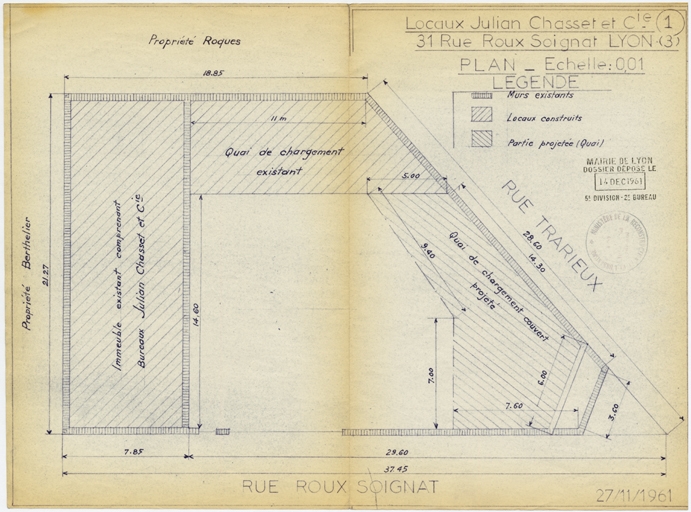 Locaux Julian Chasset et Cie
1
31 Rue Roux Soignat LYON-(3)
PLAN _ Echelle: 0,01
LEGENDE
Murs existants
Locaux construits
Partie projetée (Quai)
MAIRIE DE LYON
DOSSIER DÉPOSÉ LE
14 DEC 1961
5e DIVISION - 2e BUREAU
Propriété Roques
18.85
11 m
Quai de chargement
existant
5.00
RUE TRARIEUX
28.60
14.30
Propriété Berthelier
21.27
Immeuble existant comprenant
Bureaux Julian Chasset et Cie
14.60
9.40
Quai de chargement couvert
projeté
7.00
6.00
7.60
3.60
7.85
29.60
37.45
RUE ROUX SOIGNAT
27/11/1961